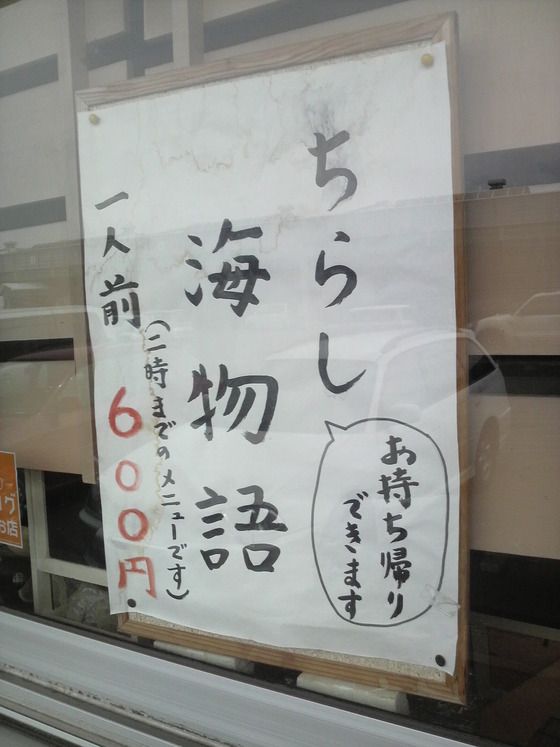 ちらし
海物語
お持ち帰り
できます
一人前 600円
(二時までのメニューです)
グ
お店